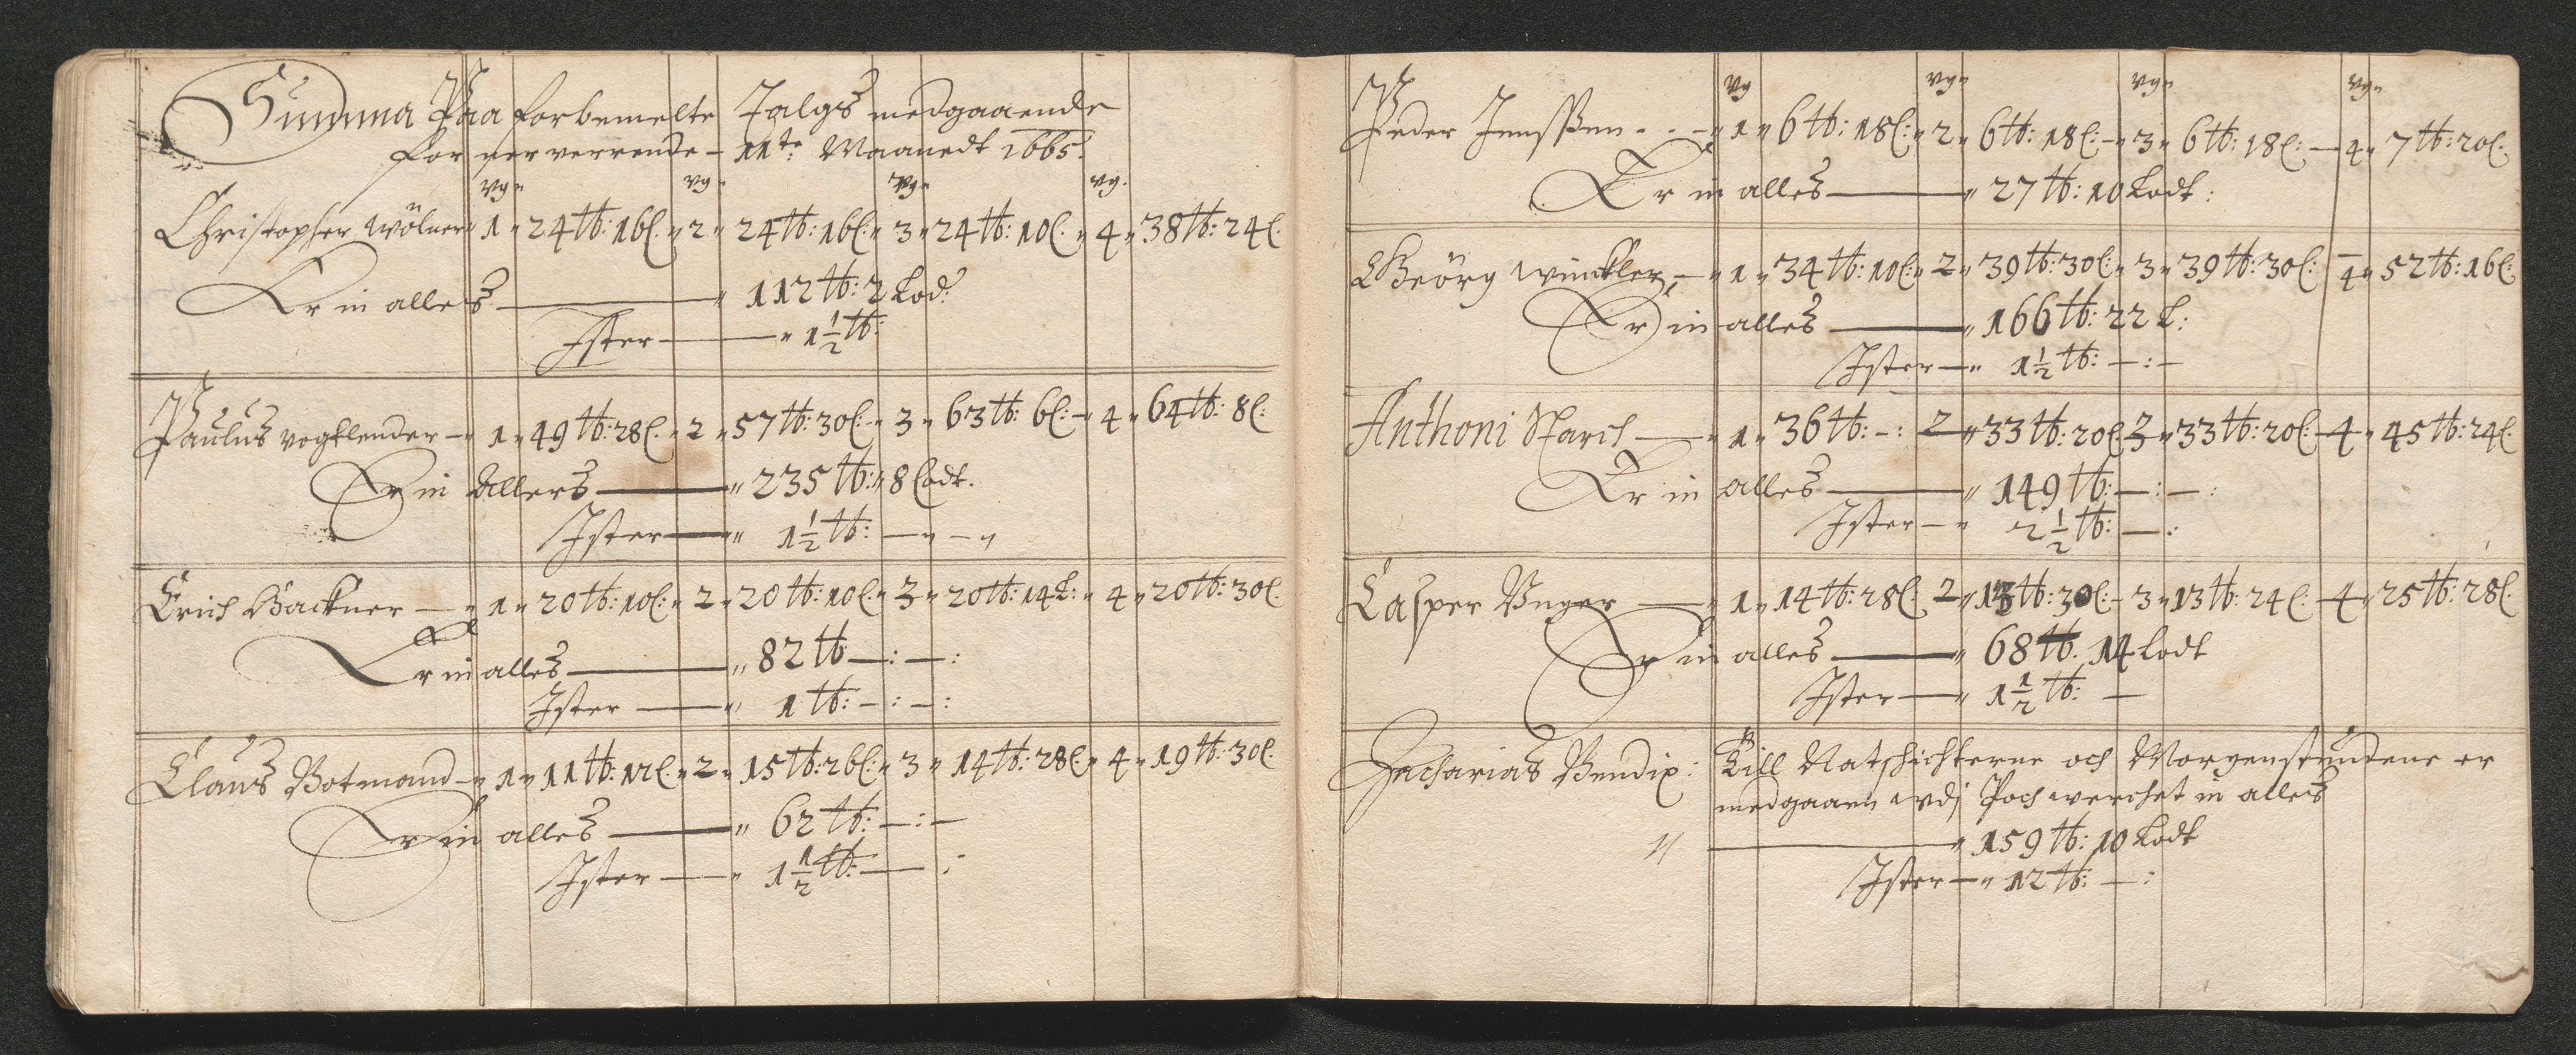 Summa Paa forbemelte Talgs medgaaende
for nerverrende – 11te Maanedt 1665.
vg„ vg„ vg„ vg.
Christopher Wölner „ 1 „ 24 ℔: 16 l: „ 2 „ 24 ℔: 16 l: „ 3 „ 24 ℔: 10 l: „ 4 „ 38 ℔: 24 l:
Er in alles — „ 112 ℔: 2 Lod:
Ister — „ 1½ ℔:
Paulus vogtlender – „ 1 „ 49 ℔: 28 l: „ 2 „ 57 ℔: 30 l: „ 3 „ 63 ℔: 6 l: – 4 „ 64 ℔: 8 l:
Er in Allers — „ 235 ℔: „ 8 Lodt.
Ister — „ 1½ ℔: — „ – „
Erich Backner — „ 1 „ 20 ℔: 10 l: „ 2 „ 20 ℔: 10 l: „ 3 „ 20 ℔: 14 L: „ 4 „ 20 ℔: 30 l:
Er in alles — „ 82 ℔ —: —:
Ister — „ 1 ℔: –: –:
Claus Botmand – „ 1 „ 11 ℔: 12 l: „ 2 „ 15 ℔: 26 l: „ 3 „ 14 ℔: 28 l: „ 4 „ 19 ℔: 30 l:
Er in alles — „ 62 ℔: —: —
Ister — „ 1½ ℔: — :
vg vg„ vg„ vg„
Peder Jensßen - - – „ 1 „ 6 ℔: 18 l: „ 2 „ 6 ℔: 18 l: – „ 3 „ 6 ℔: 18 l: — 4 „ 7 ℔: 20 l:
Er in alles — „ 27 ℔: 10 Lodt:
Geörg Winckler, — „ 1 „ 34 ℔: 10 l: „ 2 „ 39 ℔: 30 l: „ 3 „ 39 ℔: 30 l: – 4 „ 52 ℔: 16 l:
Er in alles — „ 166 ℔: 22 L:
Ister — „ 1½ ℔: —: —
Anthoni Starch — „ 1 „ 36 ℔: –: 2 „ 33 ℔: 20 l: 3 „ 33 ℔: 20 l: – 4 „ 45 ℔: 24 l:
Er in alles — „ 149 ℔: —: —:
Ister — „ 2½ ℔: —:
Casper Unger — „ 1 „ 14 ℔: 28 l: 2 „ 13 ℔: 30 l: – 3 „ 13 ℔: 24 l: – 4 „ 25 ℔: 28 l:
Er in alles — „ 68 ℔. 14 Lodt
Ister — „ 1½ ℔: —
Zacharias Bendix: Till Natschichterne och Morgenstundene er
medgaaen udj Pochwerchet in alles
„ — „ 159 ℔: 10 Lodt
Ister — „ 12 ℔: —: